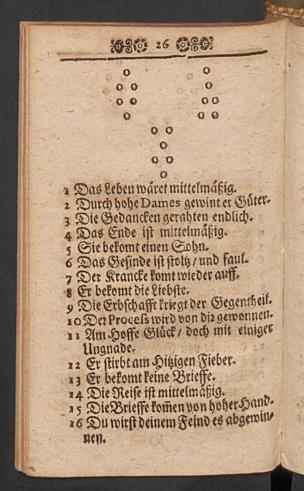 26
1 Das Leben wäret mittelmäßig.
2 Durch hohe Dames gewint er Güter.
3 Die Gedancken gerahten endlich.
4 Das Ende ist mittelmäßig.
5 Sie bekomt einen Sohn.
6 Das Gesinde ist stoltz / und faul.
7 Der Krancke komt wieder auff.
8 Er bekomt die Liebste.
9 Die Erbschafft kriegt der Gegentheil.
10 Der Process wird von dir gewonnen.
11 Am Hoffe Glück / doch mit einiger
Ungnade.
12 Er stirbt am Hitzigen Fieber.
13 Er bekomt keine Brieffe.
14 Die Reise ist mittelmäßig.
15 Die Brieffe kom̃en von hoher Hand.
16 Du wirst deinem Feind es abgewin-
nen.